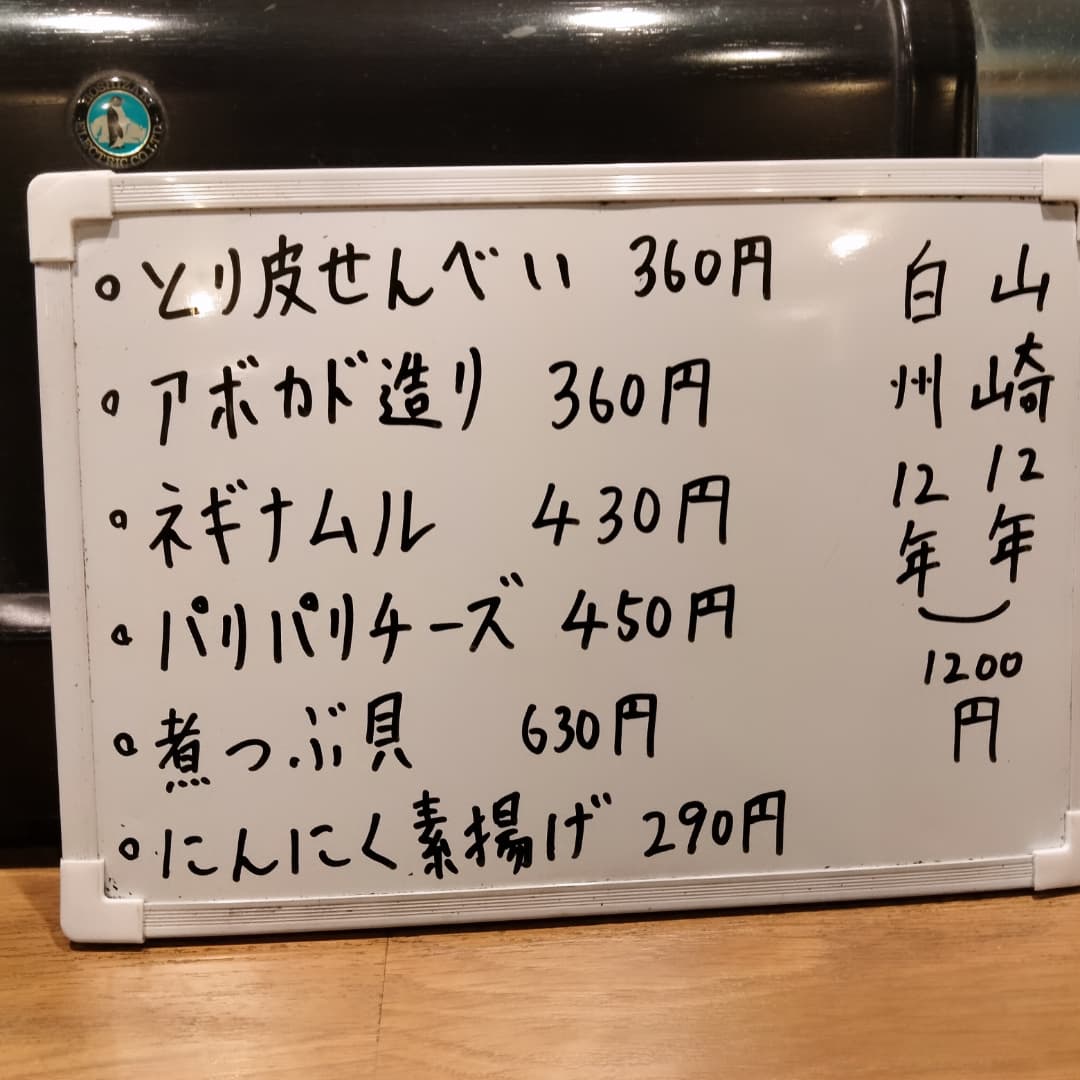 HOSHIZAKI
ELECTRIC CO.LTD.
。とり皮せんべい 360円
。アボカド造り 360円
。ネギナムル 430円
。パリパリチーズ 450円
。煮つぶ貝 630円
。にんにく素揚げ 290円
山崎12年
白州12年
1200円